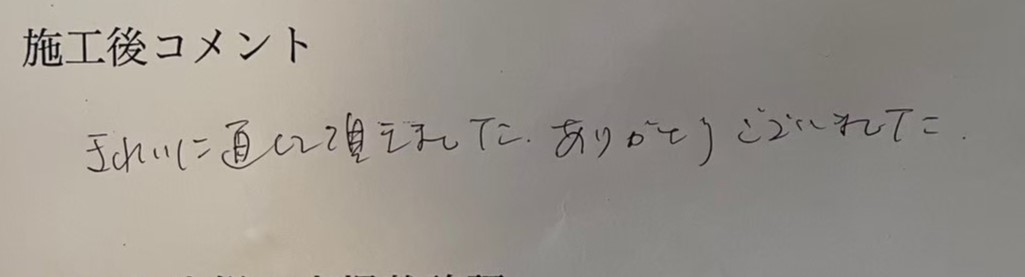 施工後コメント
きれいに直して頂きました。ありがとうございました。